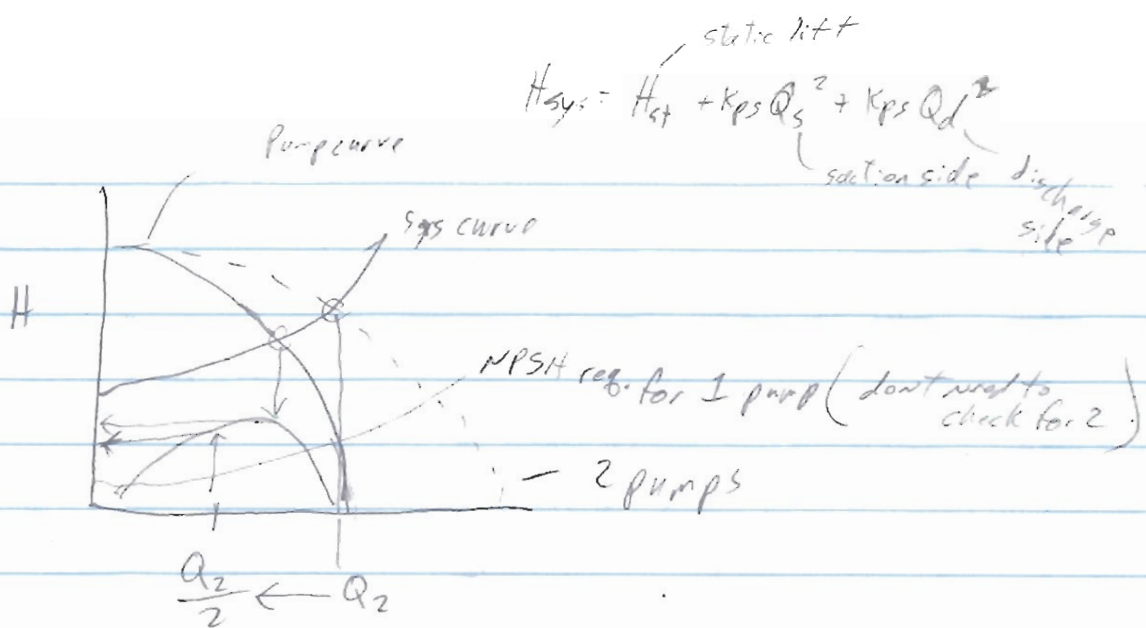 static lift
Hsys = Hst + Kps Qs² + Kps Qd²
suction side
discharge side
Pump curve
sys curve
H
NPSH req. for 1 pump (don't need to check for 2)
2 pumps
Q2/2 ← Q2